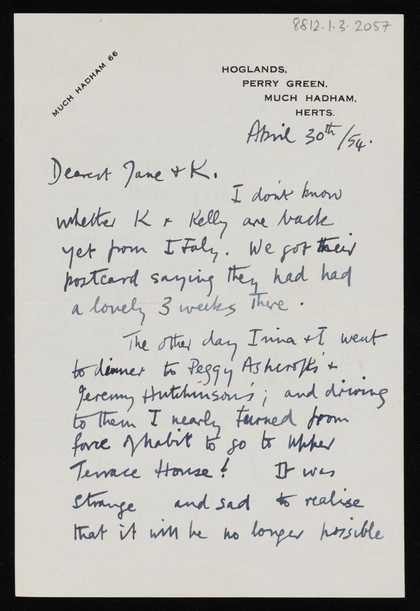 8812.1.3.2057
MUCH HADHAM 66
HOGLANDS,
PERRY GREEN,
MUCH HADHAM,
HERTS.
April 30th/54.
Dearest Jane & K.
I don't know
whether K & Kelly are back
yet from Italy. We got their
postcard saying they had had
a lovely 3 weeks there.
The other day Irina & I went
to dinner to Peggy Ashcroft's &
Jeremy Hutchinson's; and driving
to them I nearly turned from
force of habit to go to Upper
Terrace House! It was
strange and sad to realise
that it will be no longer possible